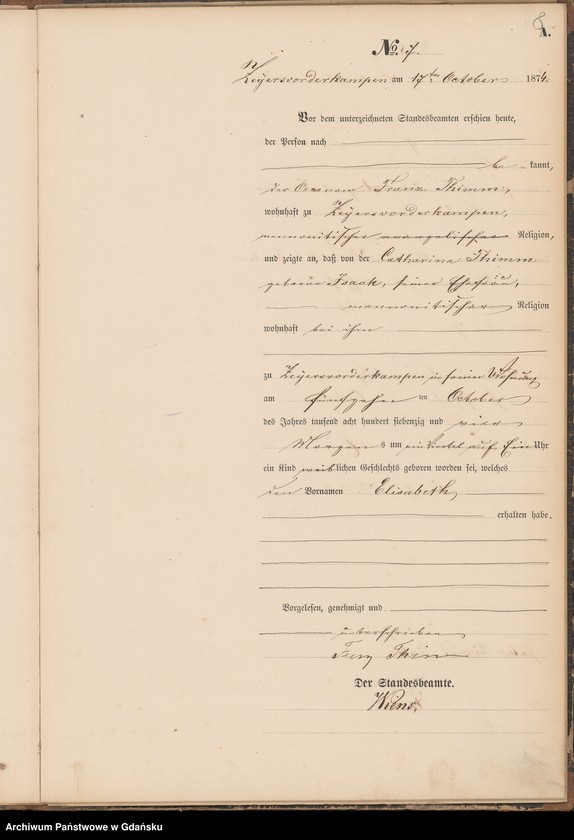 8
A.
No. 7.
Zeyersvorderkampen am 17ten October 1874.
Vor dem unterzeichneten Standesbeamten erschien heute,
der Person nach
be kannt,
der Oeconom Franz Thimm,
wohnhaft zu Zeyersvorderkampen,
mennonitischer evangelischer Religion,
und zeigte an, daß von der Catharina Thimm
geborne Isaak, seiner Ehefrau,
mennonitischer Religion
wohnhaft bei ihm
zu Zeyersvorderkampen in seiner Wohnung
am fünfzehn ten October
des Jahres tausend acht hundert siebenzig und vier
Morgen s um ein Viertel auf Ein Uhr
ein Kind weiblichen Geschlechts geboren worden sei, welches
den Vornamen Elisabeth
erhalten habe.
Vorgelesen, genehmigt und
unterschrieben
Thimm
Der Standesbeamte.
Wiens
Archiwum Państwowe w Gdańsku